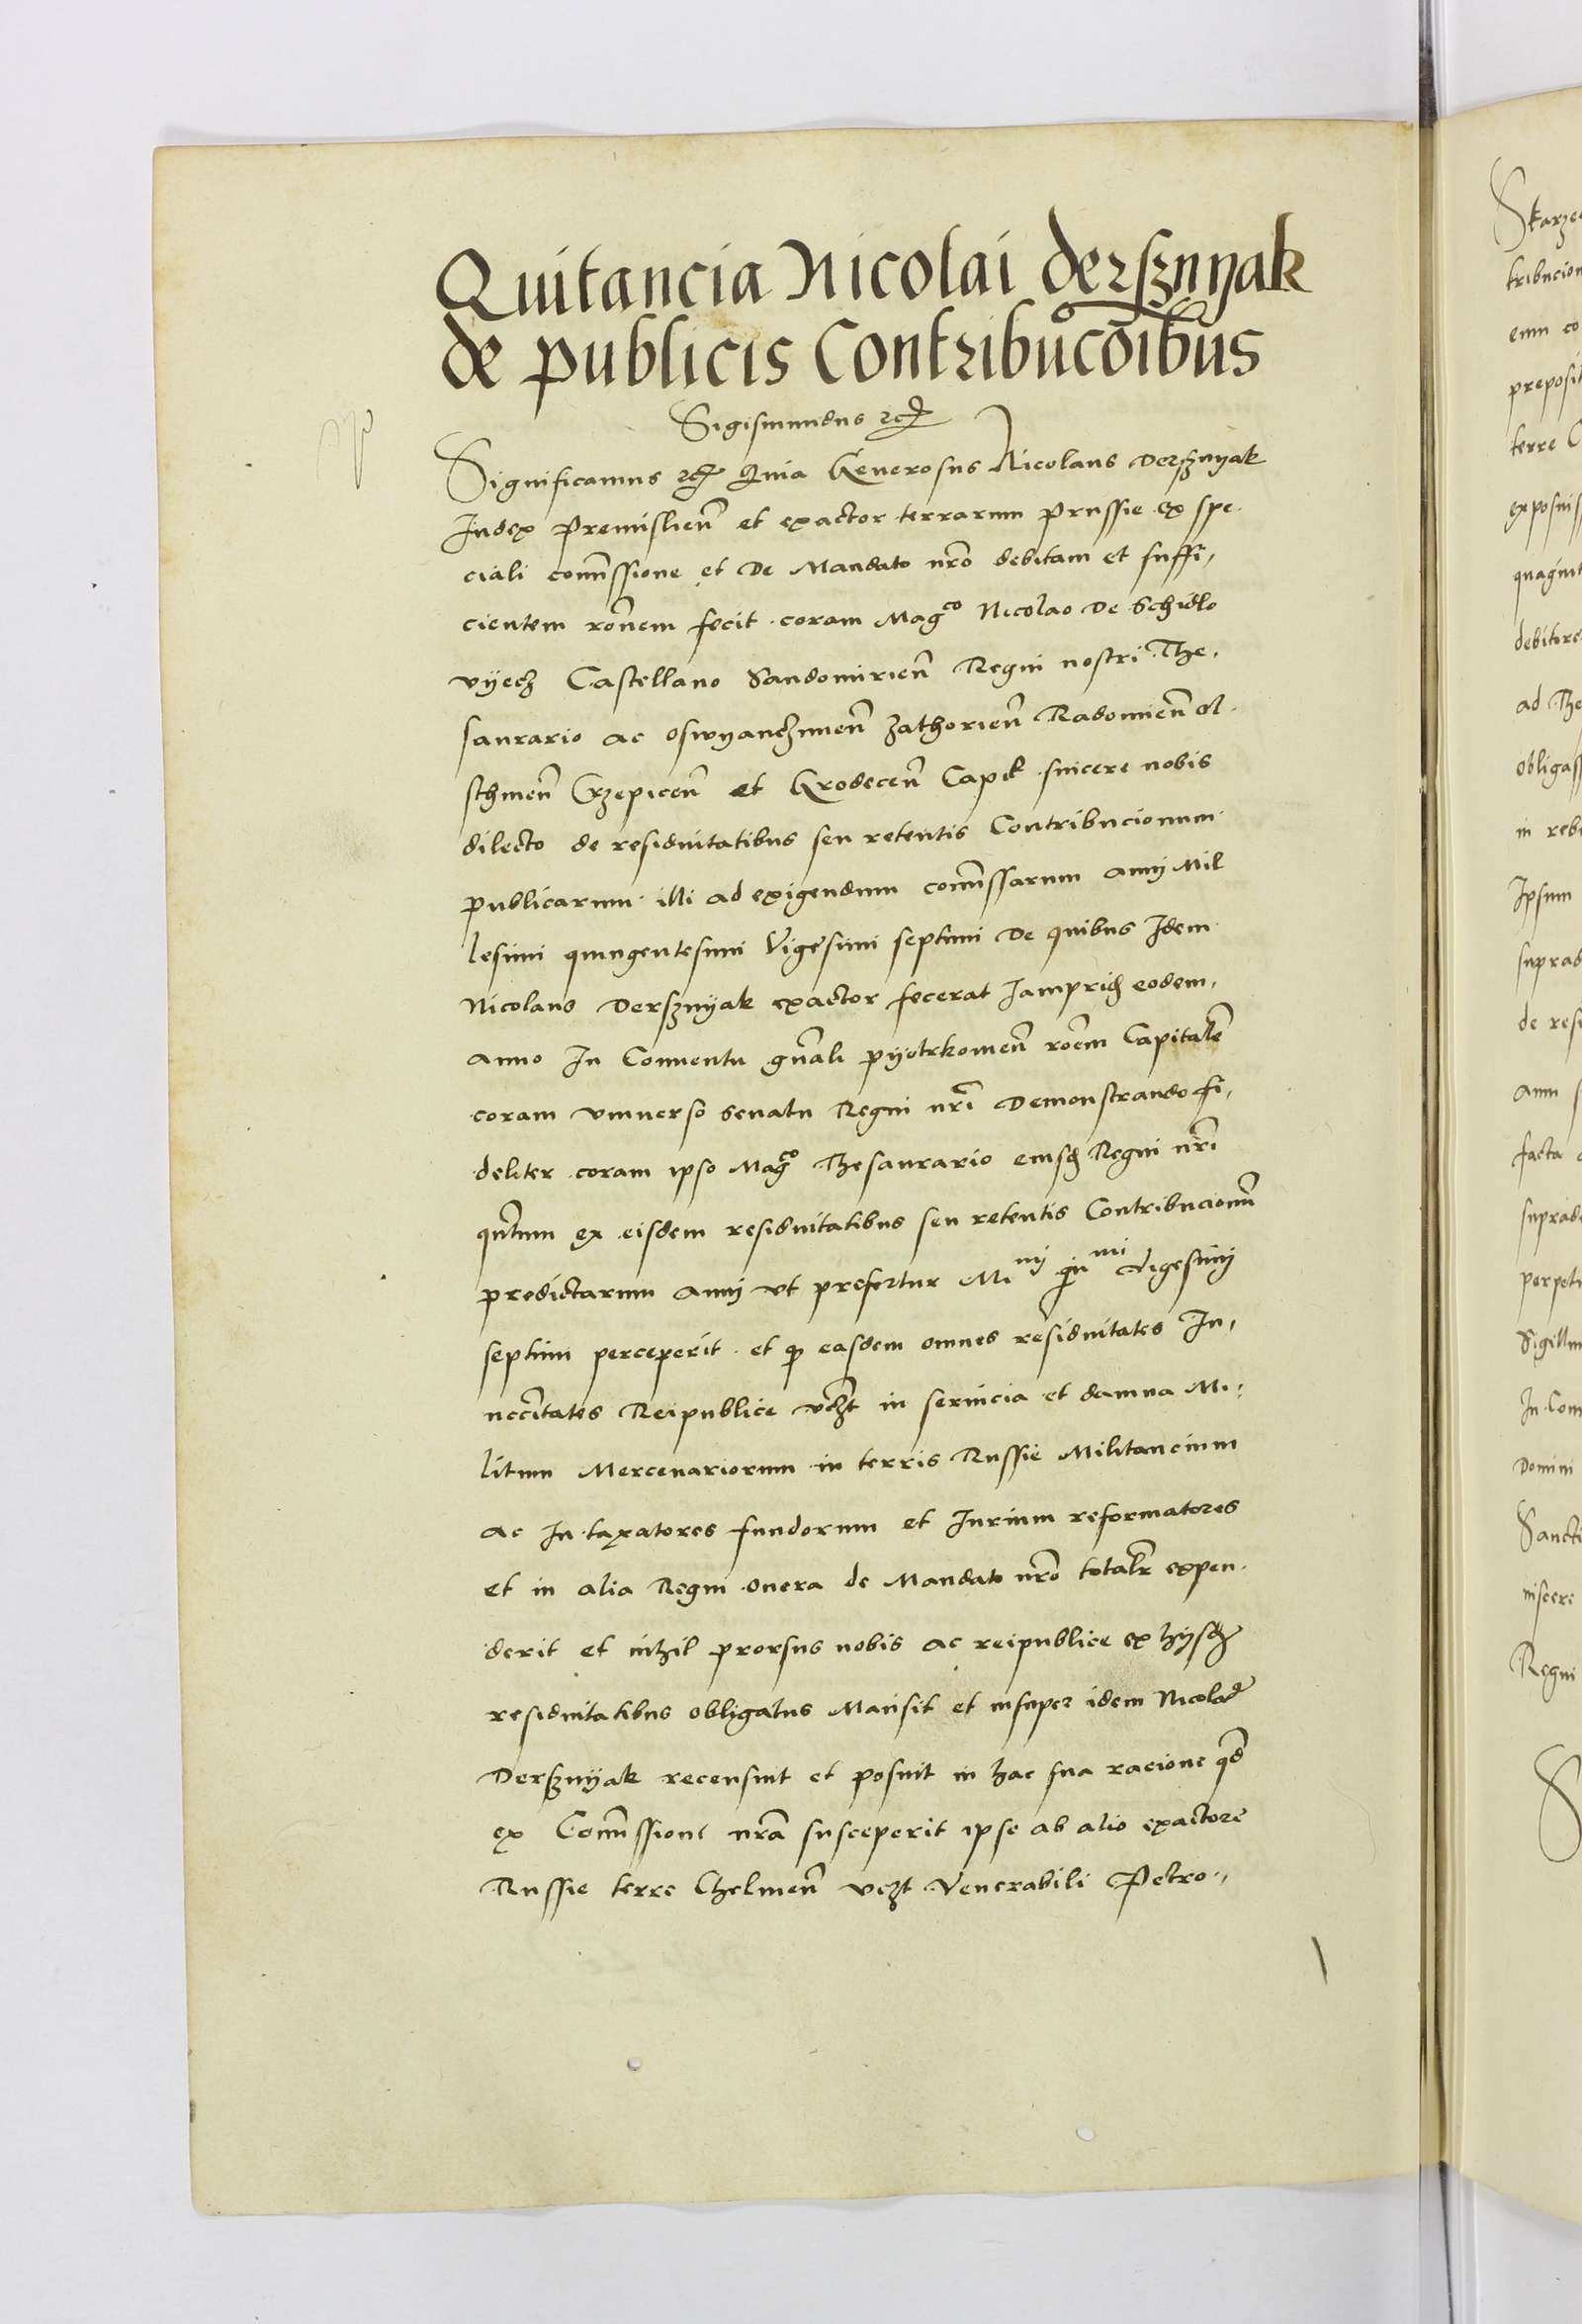 Quitancia Nicolai derssnyak
de publicis Contribucoibus
Sigismundus etc
Significamus etc Quia Generosus Nicolaus Derssnyak
Iudex Premislien et exactor terrarum Prussie ex spe
ciali comissione et De Mandato nro debitam et suffi,
cientem ronem fecit coram Magco Nicolao De Schidlo
vyecz Castellano Sandomirien Regni nostri The,
saurario ac Oswyanczimen Zathorien Radomien Ol
schinen Crzepicen et Grodecen Capit sincere nobis
dilecto de residuitatibus seu retentis Contribucionum
publicarum illi ad exigendum comissarum anni Mil
lesimi quingentesimi Vigesimi septimi De quibus Idem
Nicolaus Derssnyak exactor fecerat Iamprid eodem,
anno In Conuentu gnali pyotrkouien roem Capitale
coram vniuerso Senatu Regni nri Demonstrando fi,
deliter coram ipso Magco Thesaurario eiusd Regni nri
qntum ex eisdem residuitatibus seu retentis Contribucionu
predictarum anni vt prefertur Mimi quimi vigesimi
septimi perceperit et q easdem omnes residuitates In,
neccitates Reipublice vczt in seruicia et damna Mi,
litum Mercenariorum in terris Russie Militancium
ac In taxatores fundorum et Iurium reformatores
et in alia Regni onera de Mandato nro totalr expen
derit et nihil prorsus nobis ac reipublice ex hysd
residuitatibus obligatus Mansit et insuper idem Nicola9
Derssnyak recensuit et posuit in hac sua racione qd
ex Comissione nra susceperit ipse ab alio exactore
Russie terre Chelmen vczt Venerabili Petro,